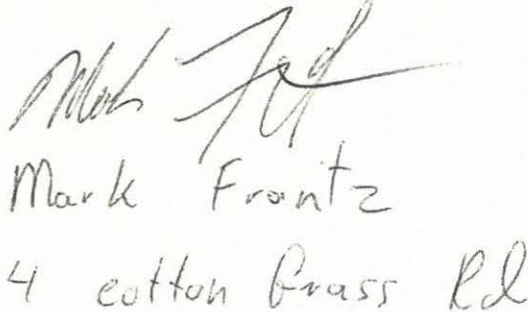 Mark Frantz
Mark Frantz
4 cotton Grass Rd